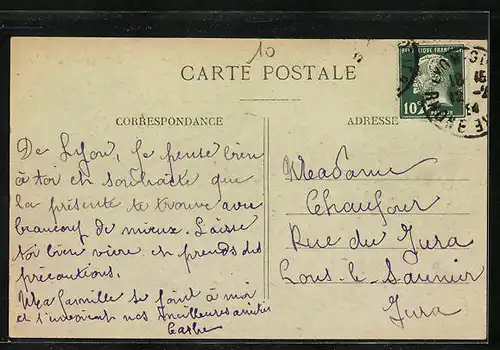 10
CARTE POSTALE
CORRESPONDANCE
ADRESSE
RÉPUBLIQUE FRANÇAISE
10c
De Lyon, je pense bien
à toi et souhaite que
la présente te trouve avec
beaucoup de mieux. Laisse
toi bien vivre et prends des
précautions.
Ma famille se joint à moi
et t'envoient nos meilleures amitiés
Madame
Chaufour
Rue du Jura
Lons-le-Saunier
Jura